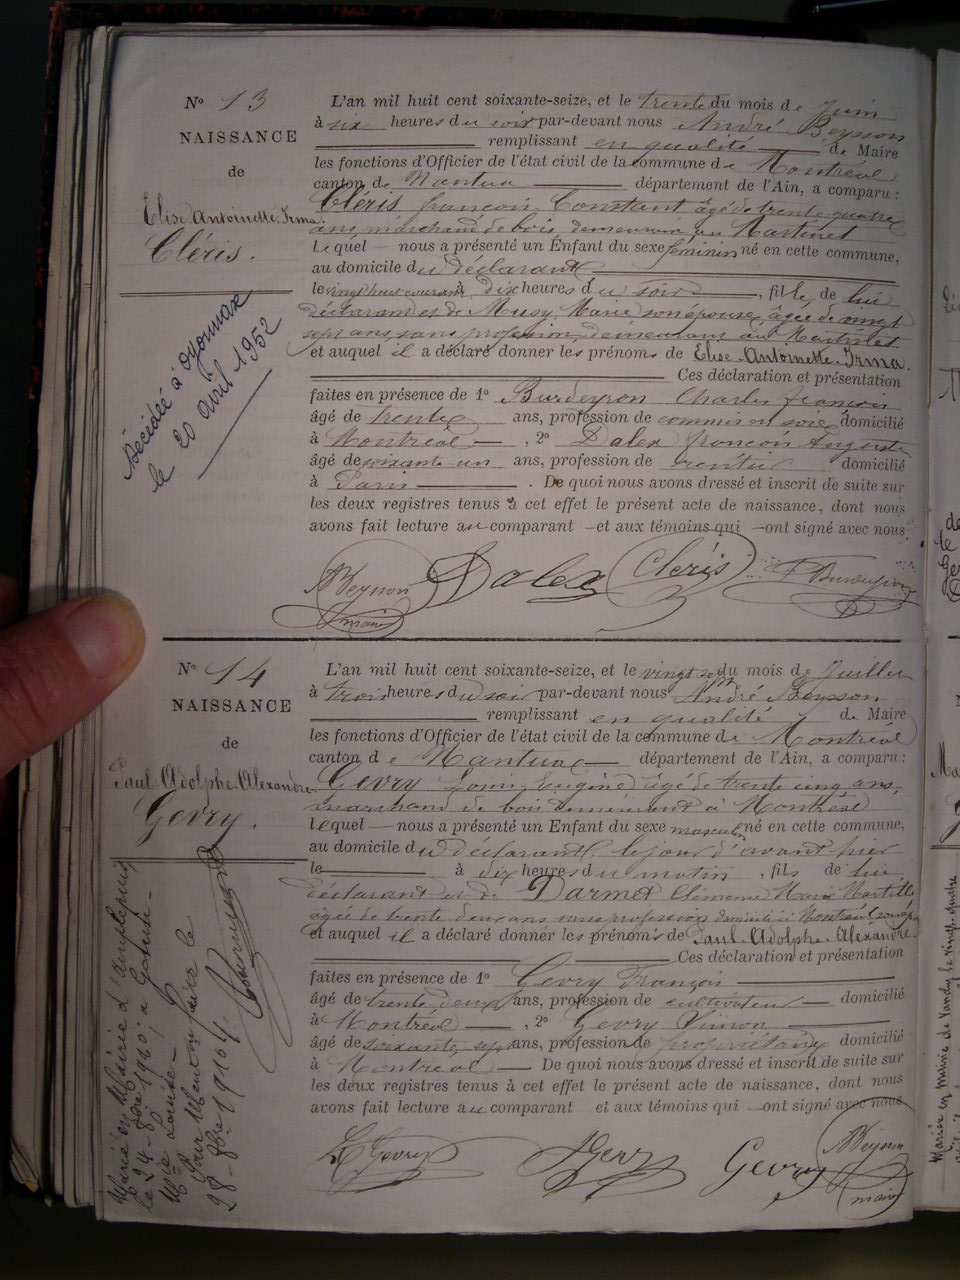 N° 13
NAISSANCE
de
Elise Antoinette Irma
Cléris.
Décédée à Oyonnax
le 20 avril 1952
L'an mil huit cent soixante-seize, et le trente du mois de Juin
à six heures du soir par-devant nous André Beysson
remplissant en qualité de Maire
les fonctions d'Officier de l'état civil de la commune de Montréal
canton de Nantua département de l'Ain, a comparu :
Cléris françois Constant âgé de trente quatre
ans, marchand de bois, demeurant au Martinet
Lequel nous a présenté un Enfant du sexe féminin né en cette commune,
au domicile du déclarant
le vingt huit courant à dix heures du soir, fille de lui
déclarant et de Musy Marie son épouse, âgée de vingt
sept ans, sans profession, demeurant au Martinet
et auquel il a déclaré donner les prénoms de Elise Antoinette Irma.
Ces déclaration et présentation
faites en présence de 1° Burdeyron Charles françois
âgé de trente ans, profession de commis en soie, domicilié
à Montréal, 2° Dalex françois Auguste
âgé de soixante un ans, profession de rentier domicilié
à Paris. De quoi nous avons dressé et inscrit de suite sur
les deux registres tenus à cet effet le présent acte de naissance, dont nous
avons fait lecture au comparant et aux témoins qui ont signé avec nous
Beysson Dalex Cléris Burdeyron
maire
N° 14
NAISSANCE
de
Paul Adolphe Alexandre
Gevry.
Marié en Mairie d'
le 24 8bre 1910 à
Mie Louise
Pour Mention faite le
28 8bre 1910
L'an mil huit cent soixante-seize, et le vingt sept du mois de Juillet
à trois heures du soir par-devant nous André Beysson
remplissant en qualité de Maire
les fonctions d'Officier de l'état civil de la commune de Montréal
canton de Nantua département de l'Ain, a comparu :
Gevry Louis Eugène âgé de trente cinq ans,
marchand de bois demeurant à Montréal
Lequel nous a présenté un Enfant du sexe masculin né en cette commune,
au domicile du déclarant le jour d'avant hier
le à dix heures du matin, fils de lui
déclarant et de Darmet Clémence Marie
âgée de trente deux ans sans profession domiciliée à Montréal
et auquel il a déclaré donner les prénoms de Paul Adolphe Alexandre
Ces déclaration et présentation
faites en présence de 1° Gevry François
âgé de trente deux ans, profession de cultivateur domicilié
à Montréal, 2° Gevry Simon
âgé de soixante sept ans, profession de propriétaire domicilié
à Montréal De quoi nous avons dressé et inscrit de suite sur
les deux registres tenus à cet effet le présent acte de naissance, dont nous
avons fait lecture au comparant et aux témoins qui ont signé avec nous
Gevry Gevry Gevry Beysson
maire